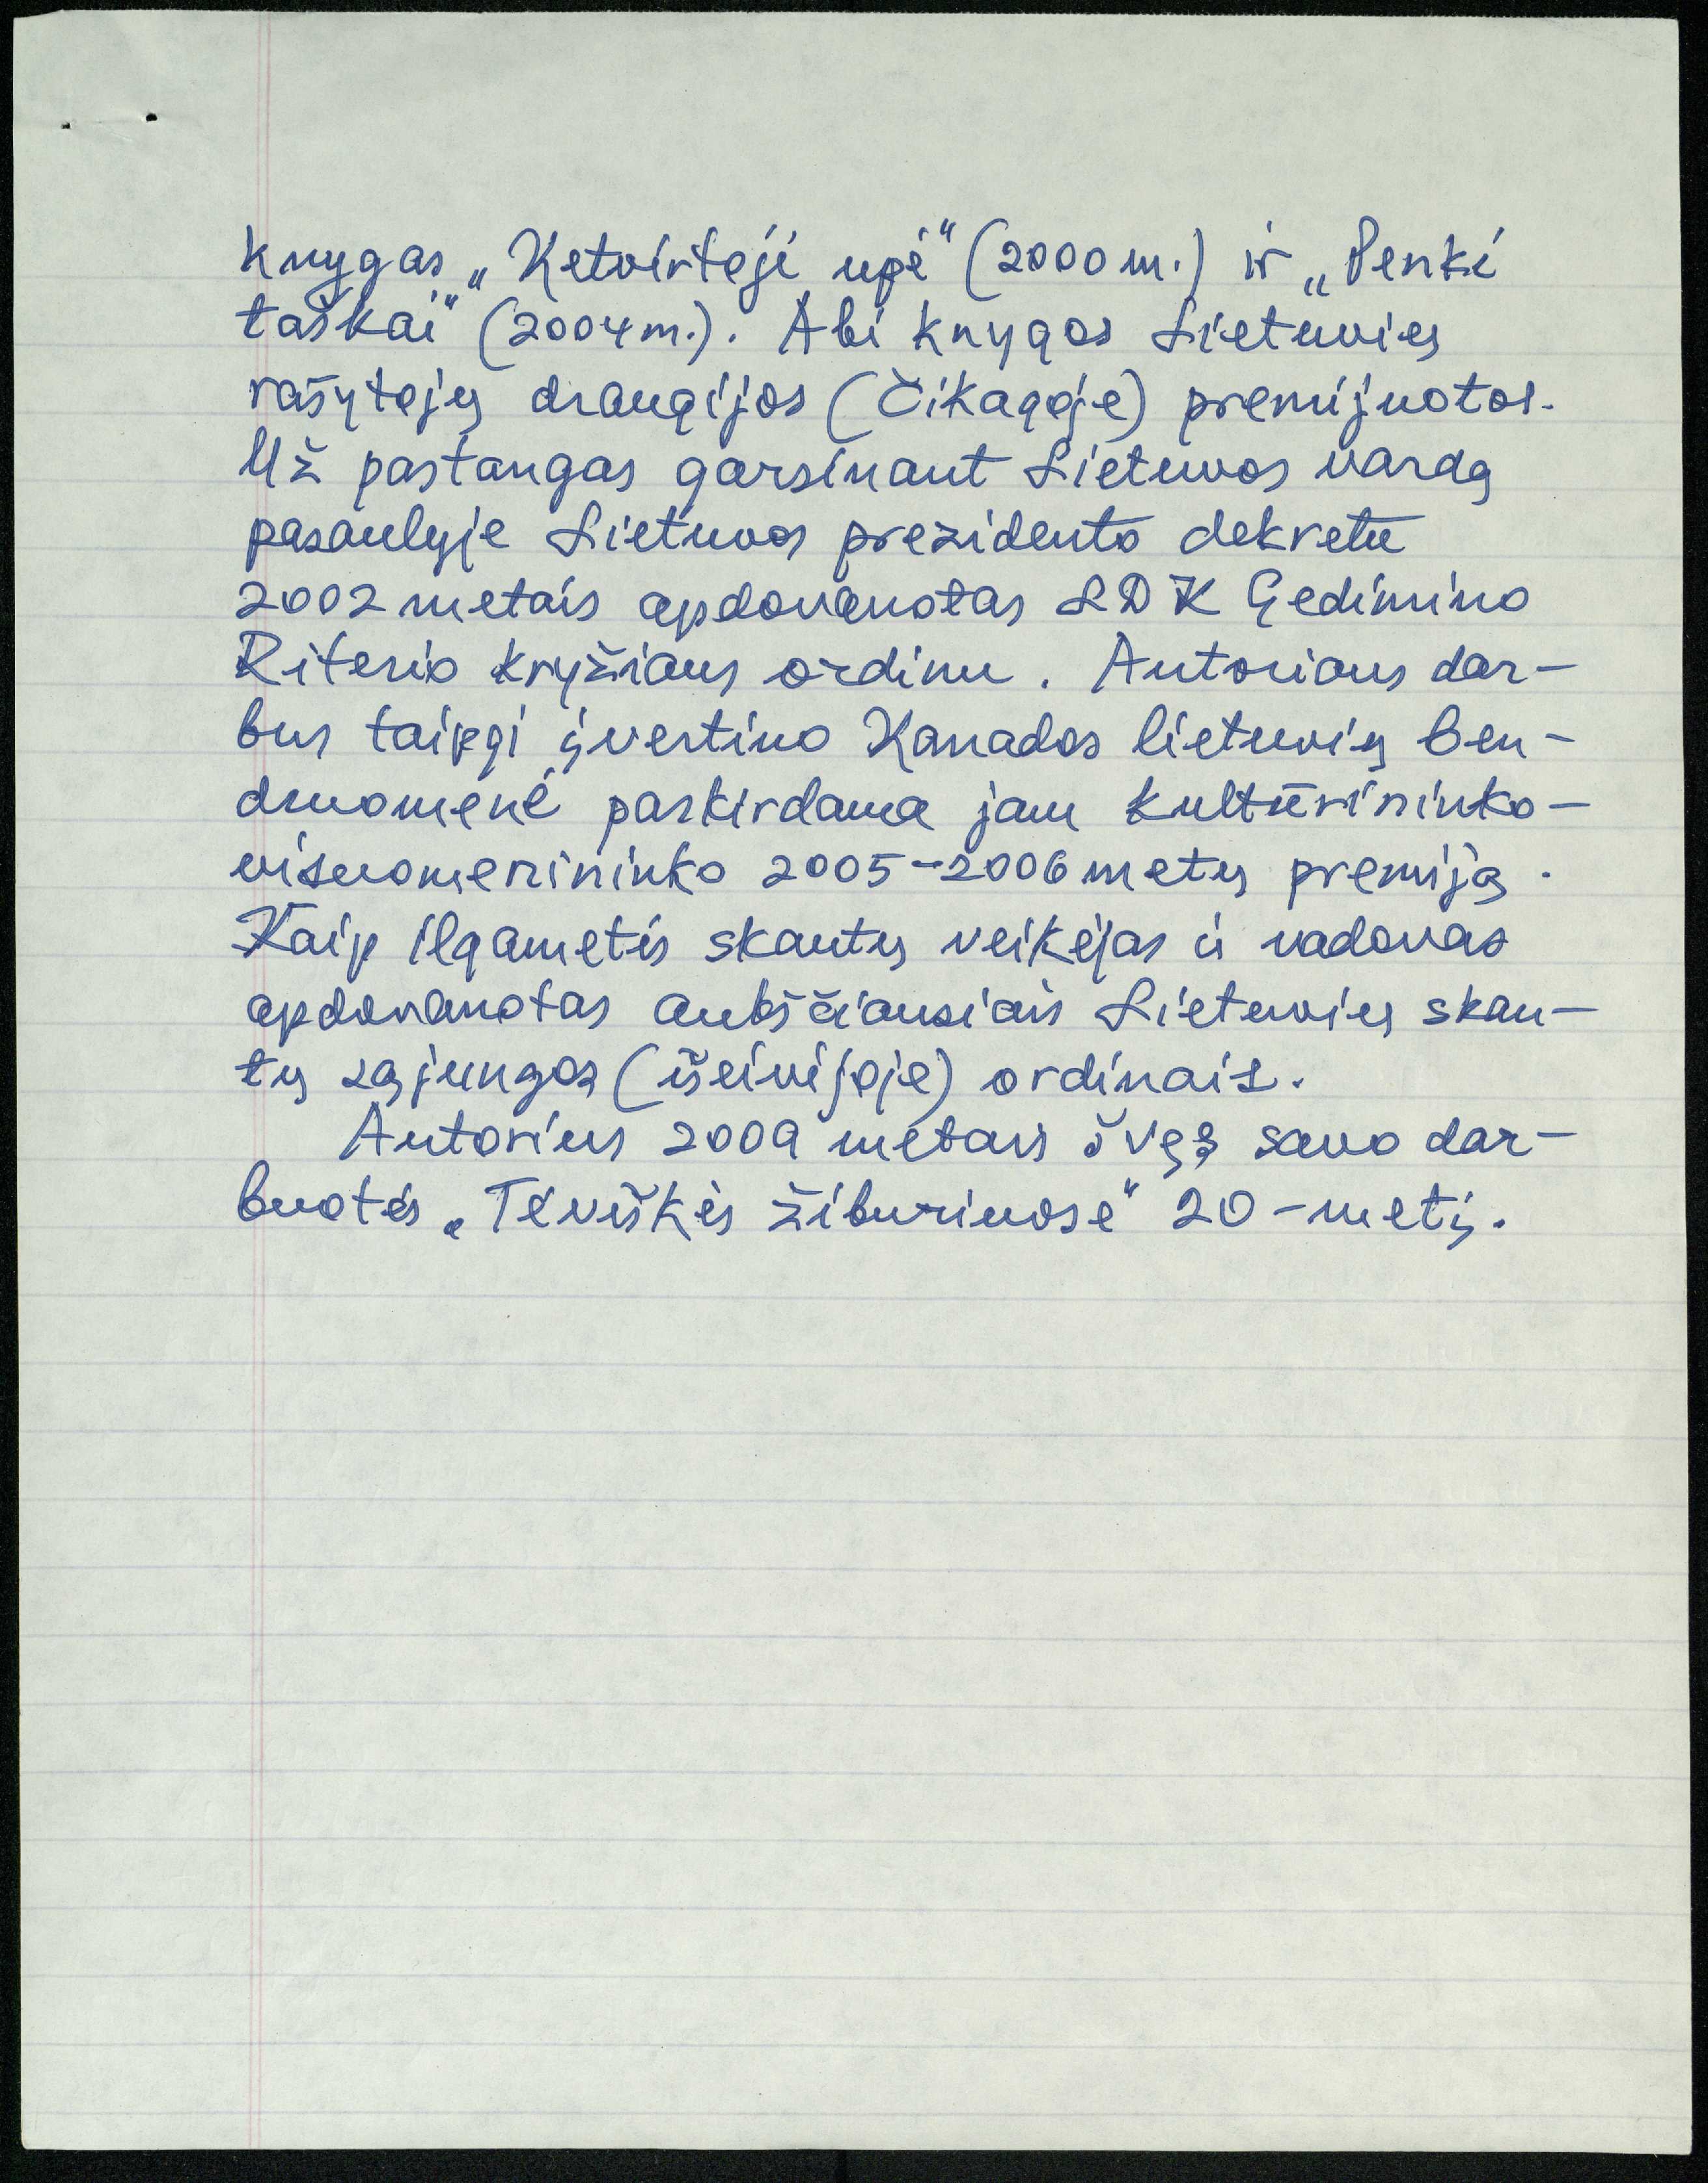 knygas „Ketvirtoji upė“ (2000 m.) ir „Penki
taškai“ (2004 m.). Abi knygos Lietuvių
rašytojų draugijos (Čikagoje) premijuotos.
Už pastangas garsinant Lietuvos vardą
pasaulyje Lietuvos prezidento dekretu
2002 metais apdovanotas LDK Gedimino
Riterio kryžiaus ordinu. Autoriaus dar-
bus taipgi įvertino Kanados lietuvių ben-
druomenė paskirdama jam kultūrininko-
visuomenininko 2005-2006 metų premiją.
Kaip ilgametis skautų veikėjas ir vadovas
apdovanotas aukščiausiais Lietuvių skau-
tų sąjungos (išeivijoje) ordinais.
Autorius 2009 metais švęs savo dar-
buotės „Tėviškės žiburiuose“ 20-metį.